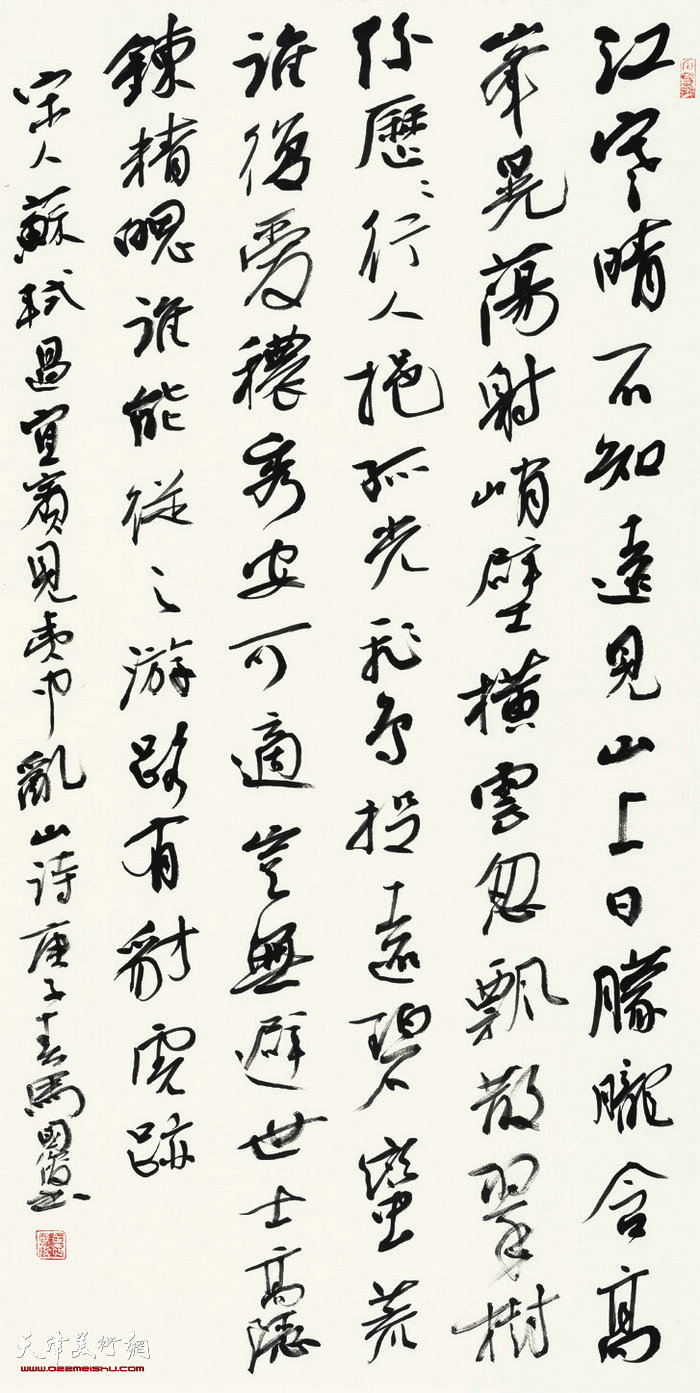 江寒晴不知遠見山上日朦朧含高
峯晃蕩射峭壁橫雲忽飄散翠樹
紛歷〻行人挹孤光飛鳥投遠碧蠻荒
誰復愛穠秀安可適豈無避世士高隱
鍊精魄誰能從之游路有豺虎跡
宋人蘇軾過宜賓見夷中亂山詩庚子春馬國俊書
天津美術網
www.022meishu.com